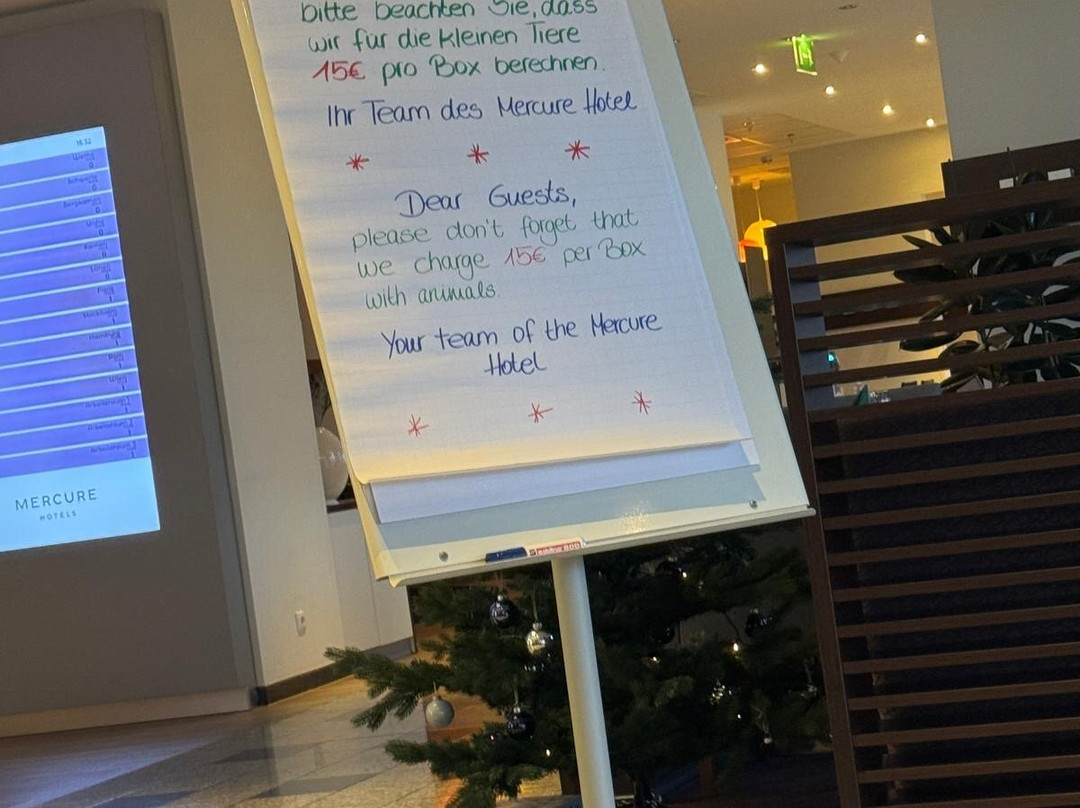 bitte beachten Sie, dass
wir für die kleinen Tiere
15€ pro Box berechnen.
Ihr Team des Mercure Hotel
Dear Guests,
please don't forget that
we charge 15€ per Box
with animals.
Your team of the Mercure
Hotel
MERCURE
HOTELS